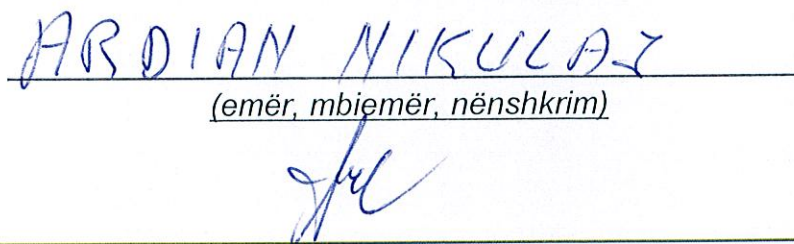 ARDIAN NIKULAJ
(emër, mbiemër, nënshkrim)